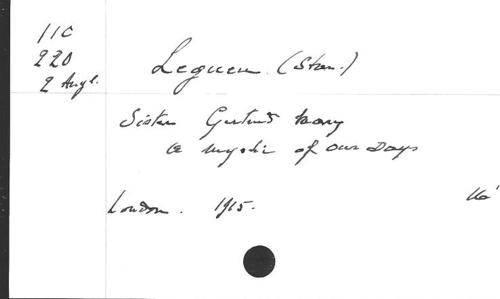 11C
220
2 Angl.
Leguen. (Stan.)
Sister Gertrude Mary
a mystic of our days
London. 1915.